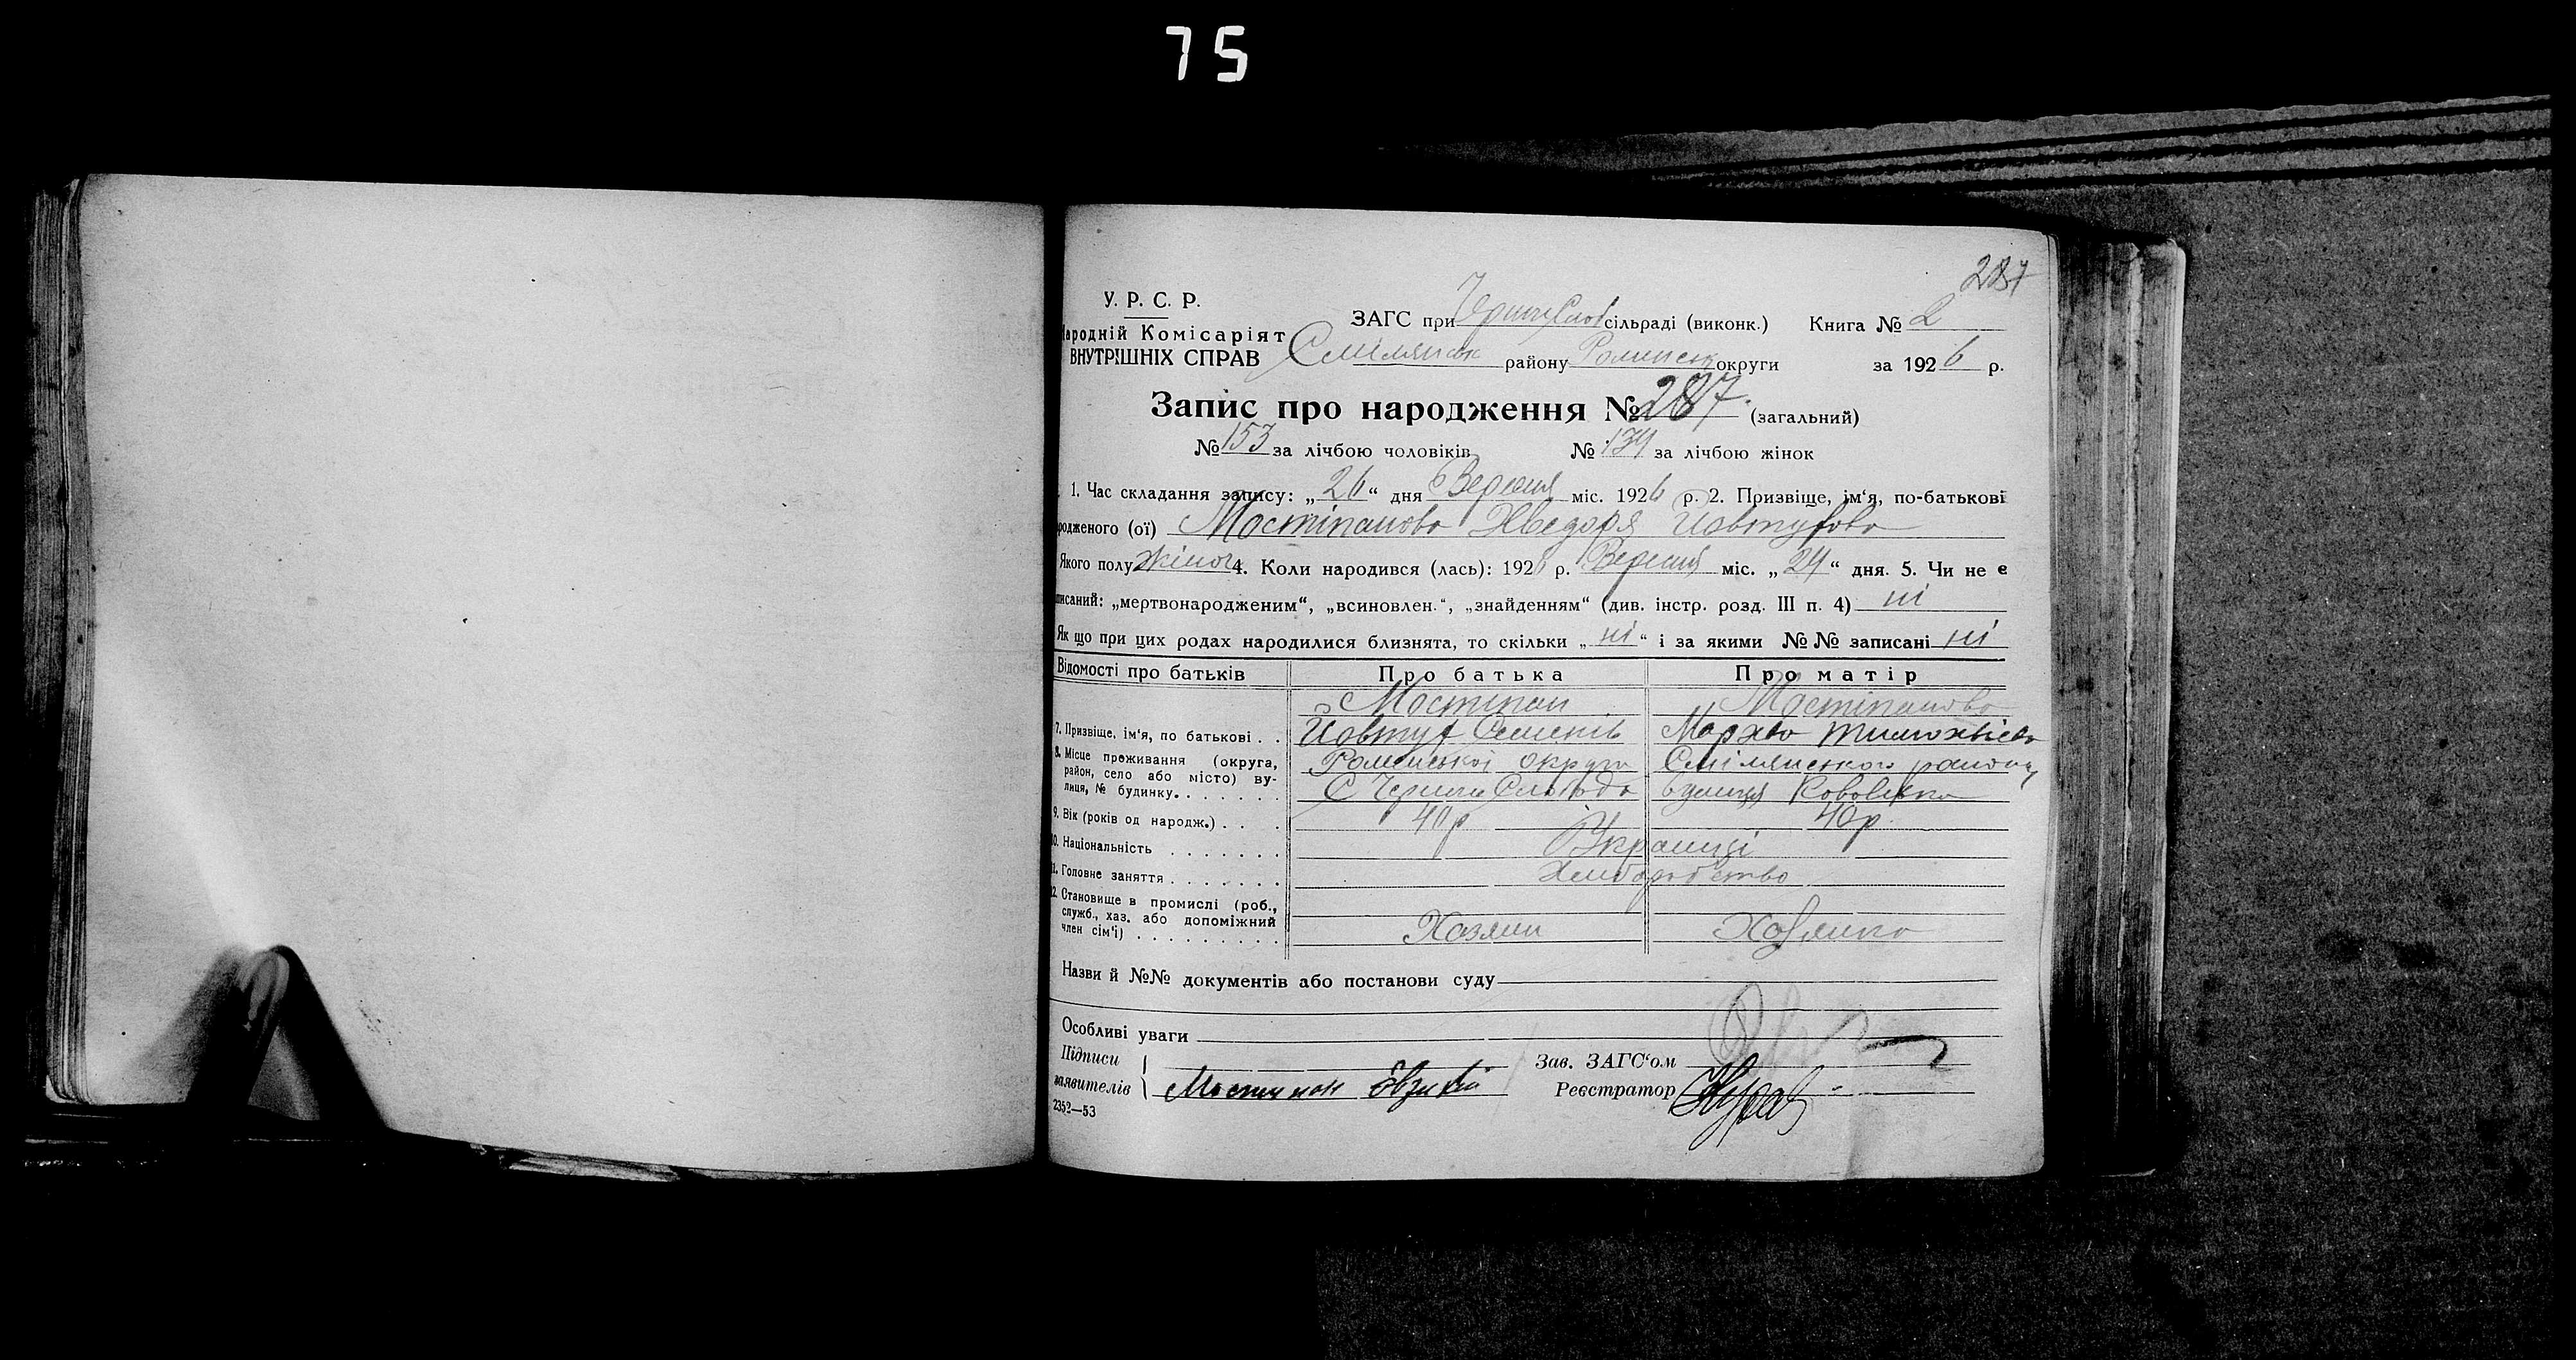 75
287
У. Р. С. Р.
Народній Комісаріят
ВНУТРІШНІХ СПРАВ
ЗАГС при сільраді (виконк.) Книга № 2
Смілянськ району Роменськ округи за 1926 р.
Запис про народження № 287. (загальний)
№ 153 за лічбою чоловіків № 134 за лічбою жінок
1. Час складання запису: „26“ дня Вересня міс. 1926 р. 2. Призвіще, ім‘я, по-батькові
родженого (ої) Мостіпанова Хведоря Йовтухова
Якого полу жіноч 4. Коли народився (лась): 1926 р. Вересня міс. „24“ дня. 5. Чи не є
писаний: „мертвонародженим“, „всиновлен.“, „знайденням“ (див. інстр. розд. III п. 4) ні
Як що при цих родах народилися близнята, то скільки „ні“ і за якими №№ записані ні
Відомості про батьків Про батька Про матір
Мостіпан Мостіпанова
7. Призвіще, ім‘я, по батькові . . Йовтух Семенів Мархва Тимохвієва
8. Місце проживання (округа, Роменської округи Смілянського району
район, село або місто) ву-
лиця, № будинку. . . . . . . С Черпича Слобода вулиця
9. Вік (років од народж.) . . . 40р 40р.
10. Національність . . . . . . . Українці
11. Головне заняття . . . . . . . Хліборобство
12. Становище в промислі (роб.,
служб., хаз. або допоміжний
член сім‘ї) . . . . . . . . . Хазяин Хазяика
Назви й №№ документів або постанови суду
Особливі уваги
Підписи
заявителів Мостипан
Зав. ЗАГС‘ом
Реєстратор
2352—53